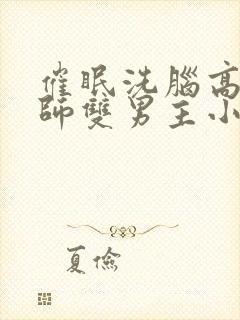 催眠洗腦高
師雙男主小
夏儉